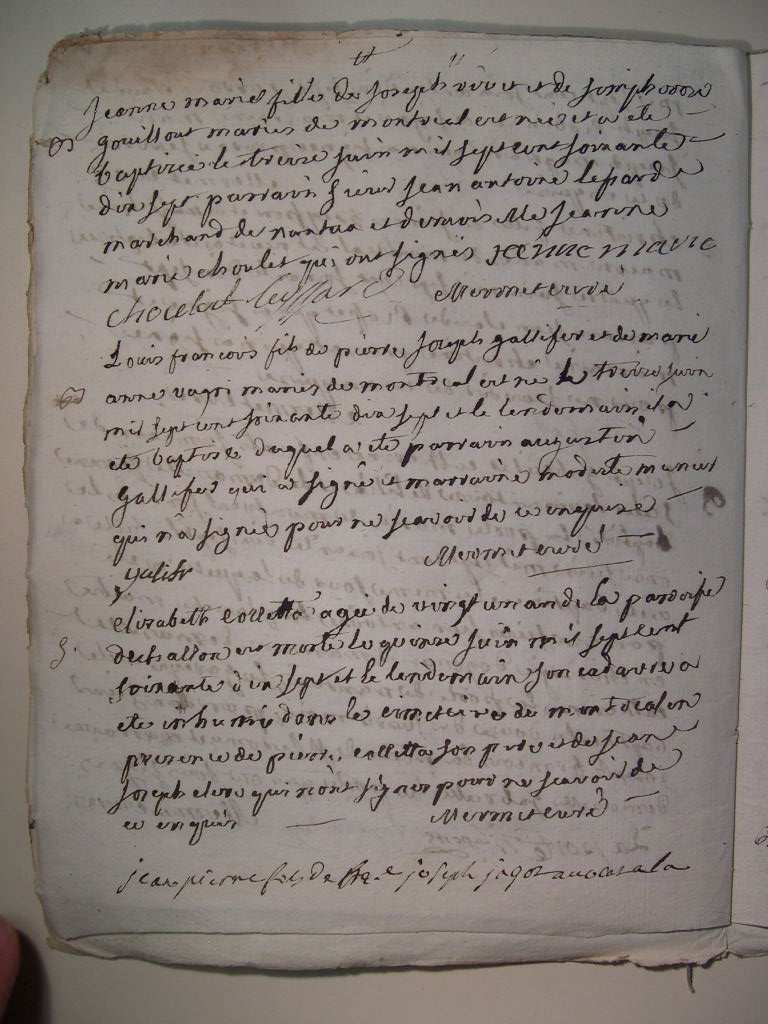 Jeanne marie fille de Joseph vivet et de simphorose
gouillout mariés de montreal est née et a ete
baptisée le treise juin mil sept cent soixante
dix sept parrain sieur jean antoine
marchand de nantua et demois lle jeanne
marie choulet qui ont signés jeanne marie
Mermet curé
Louis francois fils de pierre joseph gallifet et de marie
anne mariés de montreal est né le treise juin
mil sept cent soixante dix sept et le lendemain il a
ete baptise duquel a ete parrain augustin
Gallifet qui a signé et marraine modeste
qui n'a signée pour ne scavoir de ce enquise
Mermet curé
elisabeth colletta agée de vingt un an de la paroisse
dechallon est morte le quinse juin mil sept cent
soixante dix sept et le lendemain son cadavre a
ete inhumé dans le cimetiere de montreal en
presence de pierre colletta son pere et de jean
joseph qui n'ont signer pour ne scavoir de
ce enquis Mermet curé
jean pierre fils de joseph jagot avocat a la